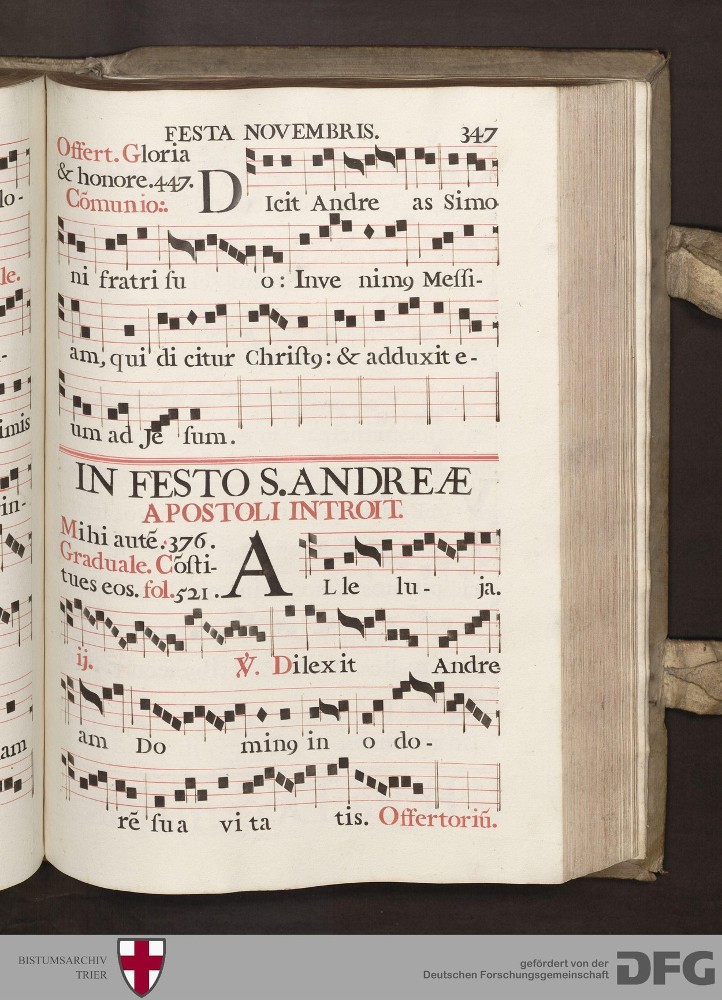 FESTA NOVEMBRIS. 347
Offert. Gloria
& honore.447.
Cõmunio:.
DIcit Andre as Simo
ni fratri ſu o: Inve nim9 Meſſi-
am, qui di citur Chriſt9: & adduxit e-
um ad Je ſum.
IN FESTO S. ANDREÆ
APOSTOLI INTROIT.
Mihi autẽ.:376.
Graduale. Cõſti-
tues eos. fol.521.
ALle lu- ja.
ij. ℣. Dilexit Andre
am Do min9 in o do-
rẽ ſua vita tis. Offertoriũ.
lo-
le.
-
imis
in-
am
BISTUMSARCHIV
TRIER
gefördert von der
Deutschen Forschungsgemeinschaft
DFG